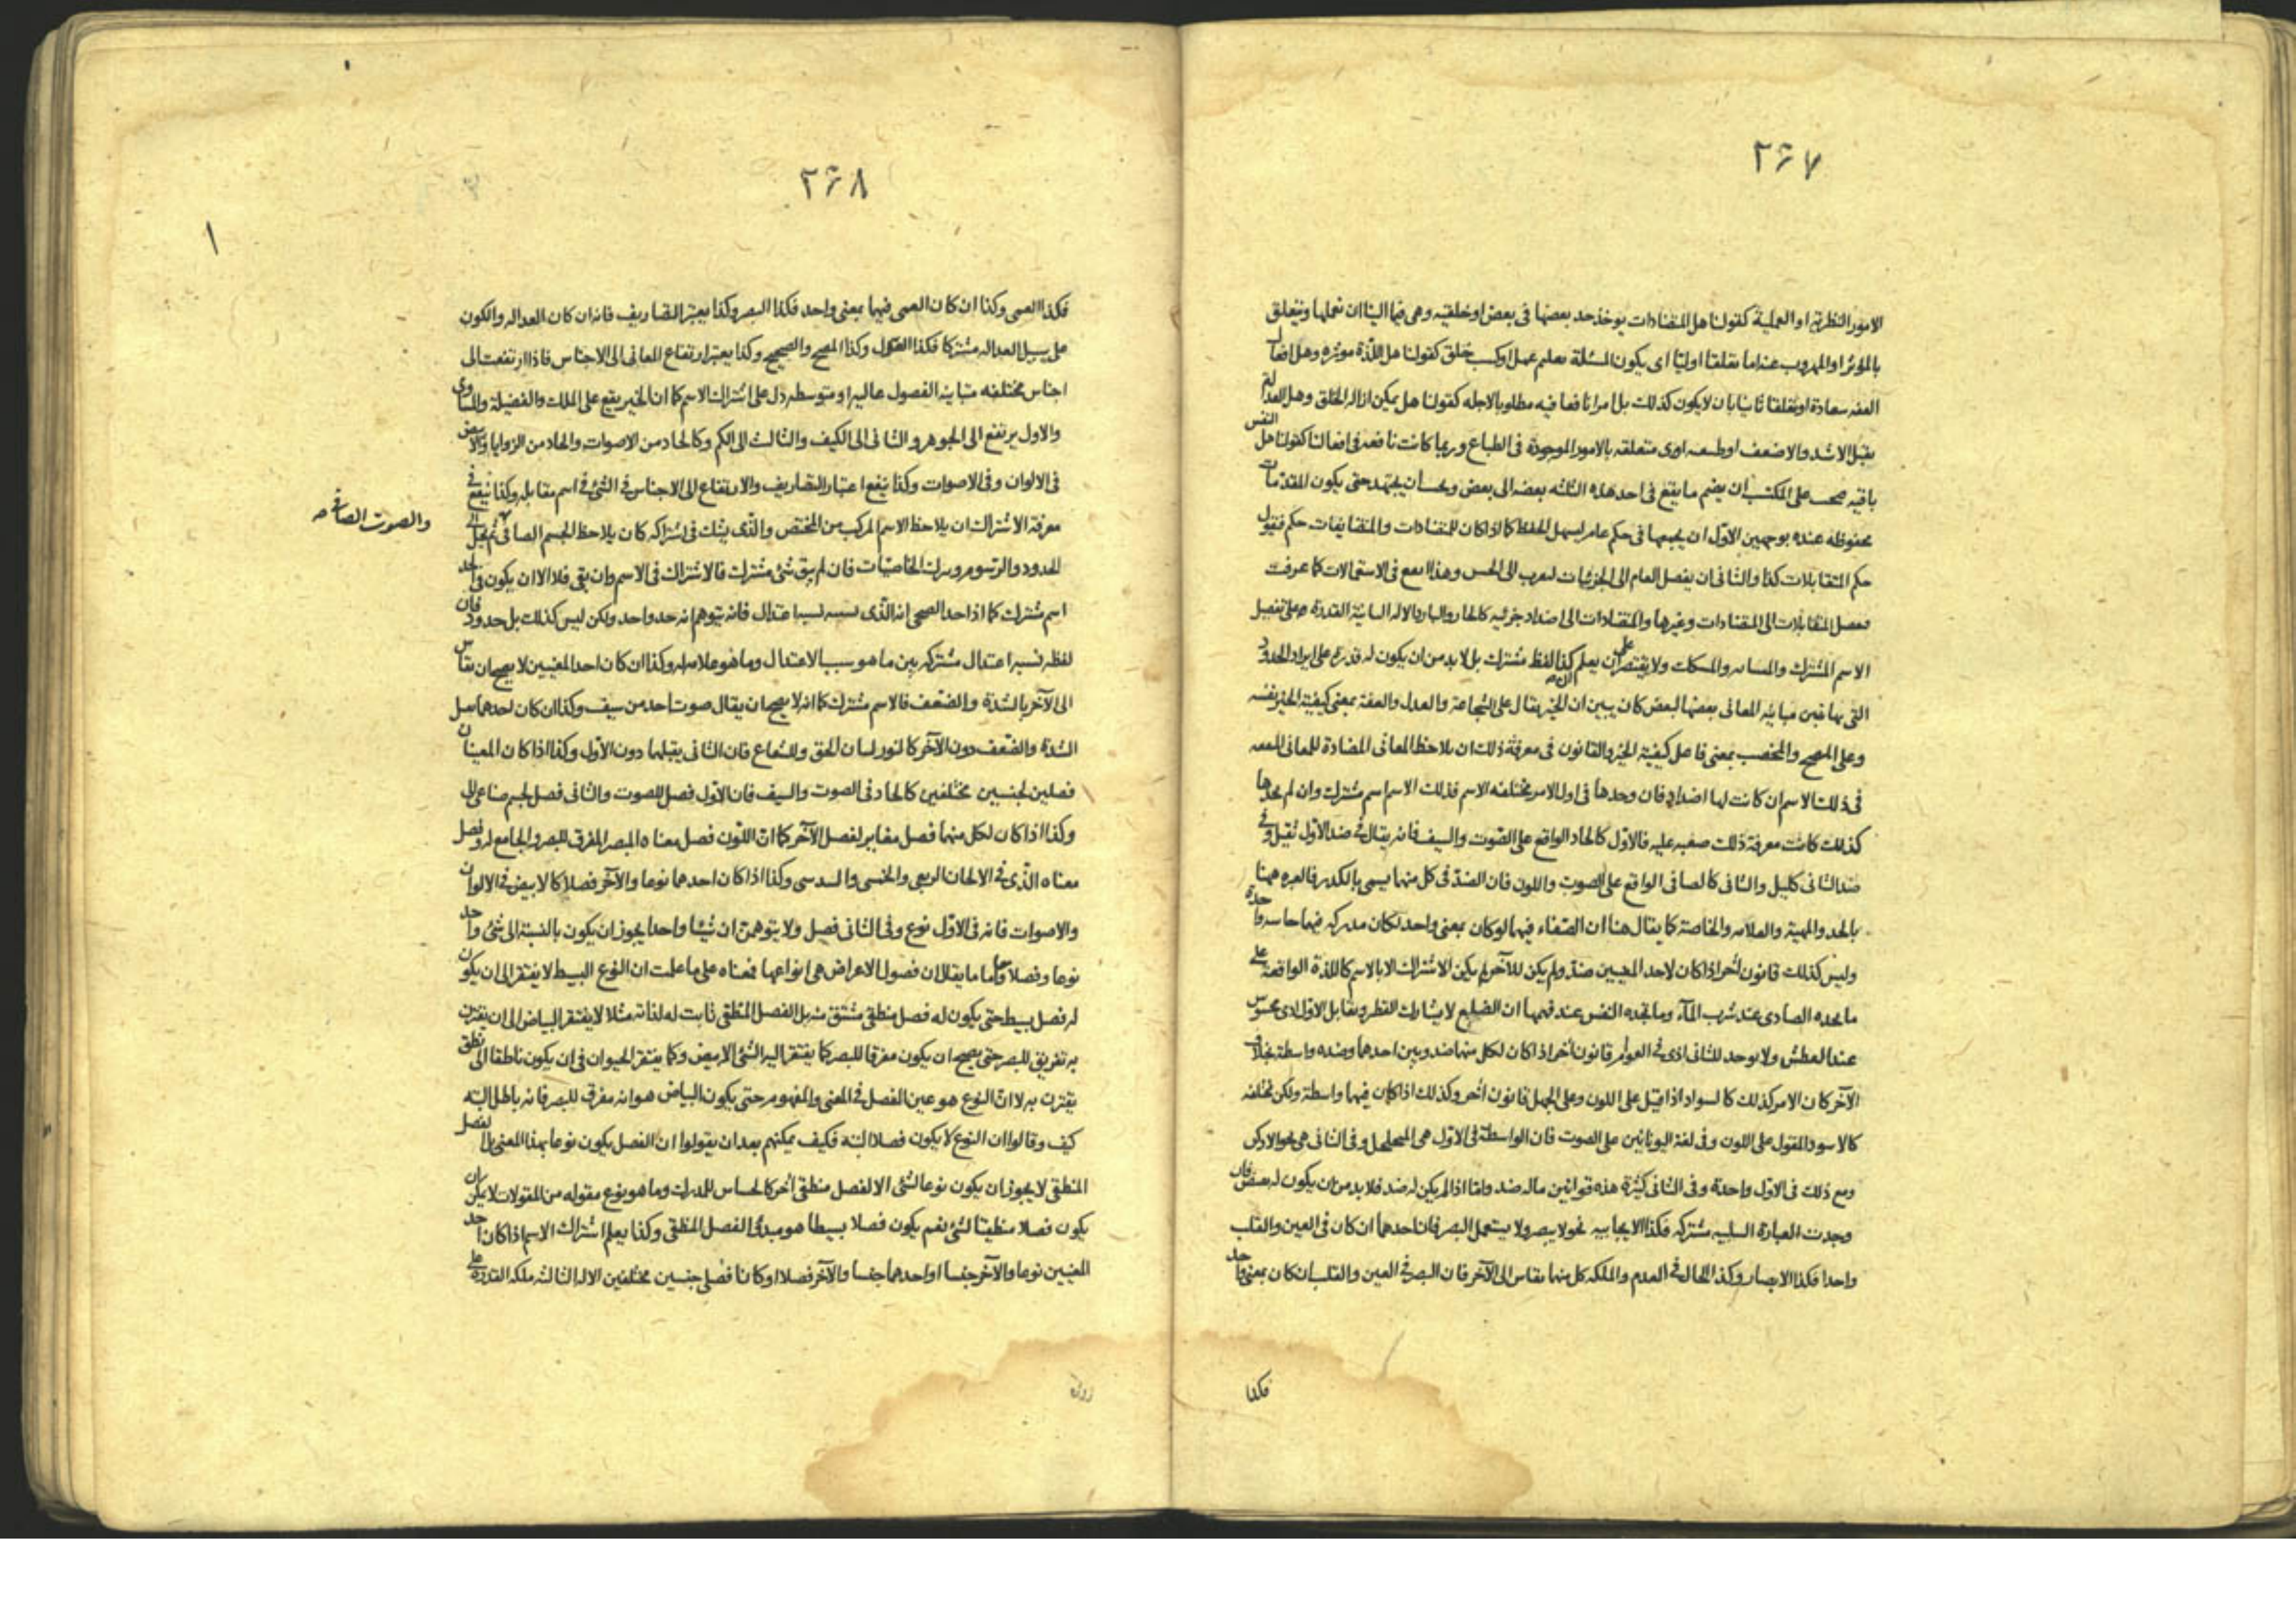 ٢٦٧
الامور النظرية او العملية كقولنا هل المتضادات يوخذ حد بعضها فى بعض او خلقيه وهى فيما الينا ان نعملها ويتعلق
بالمؤثر او المهروب عنه اما تعلقا اوليا اى يكون المسئلة تعليم عمل او كسب خلق كقولنا هل اللذة موثره وهل افعال
العفه سعادة او تعلقا ثانيا بان لا يكون كذلك بل امرا نافعا فيه مطلوبا لاجله كقولنا هل يمكن ازاله الخلق وهل العدالة
يقبل الاشد والاضعف او طبيعيه اى متعلقه بالامور الموجودة فى الطباع وربما كانت نافعه فى افعالنا كقولنا هل النفس
باقيه يجب على المكتسب ان يضم ما يقع فى احد هذه الثلثه بعضه الى بعض ويجب ان يجتهد حتى يكون المقدمات
محفوظه عنده بوجهين الاول ان يجمعها فى حكم عام ليسهل الحفظ كما اذا كان للمتضادات والمتضايفات حكم فيقول
حكم المتقابلات كذا والثانى ان يفصل العام الى الجزئيات ليقرب الى الحس وهذا انفع فى الاستعمالات كما عرفت
فيفصل المتقابلات الى المتضادات وغيرها والمتضادات الى اضداد جزئيه كالحار والبارد الاله الثانية القدرة على تفصيل
الاسم المشترك ولا يقتصر على ان يعلم ان كذا لفظ مشترك بل لا بد من ان يكون له قدرة على ايراد الحدود
التى بها تبين مباينه المعانى بعضها لبعض كان يبين ان الخير يقال على الشجاعة والعدل والعفة بمعنى كيفية الخير نفسه
وعلى المصح والمخصب بمعنى فاعل كيفية الخير والقانون فى معرفة ذلك ان يلاحظ المعانى المضادة للمعانى
فى ذلك الاسم ان كانت لها اضداد فان وجدها فى اول الامر مختلفه الاسم فذلك الاسم اسم مشترك وان لم يجدها
كذلك كانت معرفة ذلك صعبه عليه فالاول كالحاد الواقع على الصوت والسيف فانه يقال فى ضد الاول ثقيل وفى
ضد الثانى كليل والثانى كالصافى الواقع على الصوت واللون فان الضد فى كل منهما يسمى بالكدر فالعبره ههنا
بالحد والمهية والعلامه والخاصة كما يقال هنا ان الصفاء فيهما لو كان بمعنى واحد لكان مدركه فيهما حاسه واحدة
وليس كذلك قانون اخر اذا كان لاحد المعنيين ضد ولم يكن للآخر لم يكن الاشتراك الا بالاسم كاللذة الواقعة على
ما يجده الصادى عند شرب المآء وما تجده النفس عند فهمها ان الضلع لا يشارك القطر ويقابل الاول اذى محسوس
عند العطش ولا يوجد للثانى اذى قانون اخر اذا كان لكل منهما ضد وبين احدهما وضده واسطة بخلاف
الآخر كان الامر كذلك كالسواد اذا قيل على اللون وعلى الجهل قانون اخر وكذلك اذا كان فيهما واسطة ولكن مختلفه
كالاسود المقول على اللون وفى لغة اليونانيين على الصوت فان الواسطة فى الاول هى وفى الثانى هى نحو الادكن
ومع ذلك فى الاول واحدة وفى الثانى كثيرة هذه قوانين ماله ضد واما اذا لم يكن له ضد فلا بد من ان يكون له نقيض فان
وجدت العبارة السلبيه مشتركه فكذا الايجابيه نحو لا يبصر ولا يستعمل البصر فان احدهما ان كان فى العين والقلب
واحدا فكذا الابصار وكذا الحال فى العدم والملكه كل منهما يقاس الى الآخر فان البصر فى العين والقلب ان كان بمعنى واحد
فكذا
٢٦٨
١
فكذا العمى وكذا ان كان العمى فيهما بمعنى واحد فكذا البصر وكذا يعتبر التصاريف فانه ان كان العداله والكون
على سبيل العداله مشتركا فكذا العدل وكذا المصح والصحيح وكذا يعتبر ارتفاع المعانى الى الاجناس فاذا ارتفعت الى
اجناس مختلفه متباينه الفصول عاليه او متوسطه دل على اشتراك الاسم كما ان الخير يقع على الملك والفضيلة والمساوى
والاول يرتفع الى الجوهر والثانى الى الكيف والثالث الى الكم وكالحاد من الاصوات والحاد من الزوايا والابيض
فى الالوان وفى الاصوات وكذا ينفع اعتبار التصاريف والارتفاع الى الاجناس فى الشئ فى اسم مقابله وكذا ينفع فى
معرفة الاشتراك ان يلاحظ الاسم المركب من المختص والذى يشك فى اشتراكه كان يلاحظ الجسم الصافى ثم يحلل الى
والصوت الصافى صح
الحدود والرسوم ويترك الخاصيات فان لم يبق شئ مشترك فالاشتراك فى الاسم وان بقى فلا الا ان يكون فى الحد
اسم مشترك كما اذا حد الصحى انه الذى نسبته نسبة اعتدال فانه يتوهم انه حد واحد ولكن ليس كذلك بل حدود فان
لفظه نسبه اعتدال مشتركه بين ما هو سبب الاعتدال وما هو علامه له وكذا ان كان احد المعنيين لا يصح ان يقاس
الى الآخر بالشدة والضعف فالاسم مشترك كما انه لا يصح ان يقال صوت احد من سيف وكذا ان كان احدهما يقبل
الشدة والضعف دون الآخر كالنور لبيان الحق وللشعاع فان الثانى يقبلهما دون الاول وكذا اذا كان المعنيان
فصلين لجنسين مختلفين كالحاد فى الصوت والسيف فان الاول فصل للصوت والثانى فصل لجسم صناعى الى
وكذا اذا كان لكل منهما فصل مغاير لفصل الآخر كما ان اللون فصل معناه المبصر المفرق للبصر والجامع له وفصل
معناه الذى فى الالحان الربعى والخمسى والسدسى وكذا اذا كان احدهما نوعا والآخر فصلا كالابيض فى الالوان
والاصوات فانه فى الاول نوع وفى الثانى فصل ولا يتوهمن ان شيئا واحدا يجوز ان يكون بالنسبة الى شئ واحد
نوعا وفصلا واما ما يقال ان فصول الاعراض هى انواعها فمعناه على ما علمت ان النوع البسيط لا يفتقر الى ان يكون
له فصل بسيط حتى يكون له فصل منطقى مشتق منه بل الفصل المنطقى ثابت له لذاته مثلا لا يفتقر البياض الى ان يقترن
به تفريق للبصر حتى يصح ان يكون مفرقا للبصر كما يفتقر اليه الشئ الابيض وكما يفتقر الحيوان فى ان يكون ناطقا الى نطق
يقترن به لا ان النوع هو عين الفصل فى المعنى والمفهوم حتى يكون البياض هو انه مفرق للبصر فانه باطل البته
كيف وقالوا ان النوع لا يكون فصلا البته فكيف يمكنهم بعد ان يقولوا ان الفصل يكون نوعا بهذا المعنى بل الفصل
المنطقى لا يجوز ان يكون نوعا لشئ الا لفصل منطقى اخر كالحساس للمدرك وما هو نوع مقوله من المقولات لا يمكن ان
يكون فصلا منطقيا لشئ نعم يكون فصلا بسيطا هو مبدأ الفصل المنطقى وكذا يعلم اشتراك الاسم اذا كان احد
المعنيين نوعا والآخر جنسا او احدهما جنسا والآخر فصلا او كانا فصلى جنسين مختلفين الاله الثالثه ملكه القدرة على